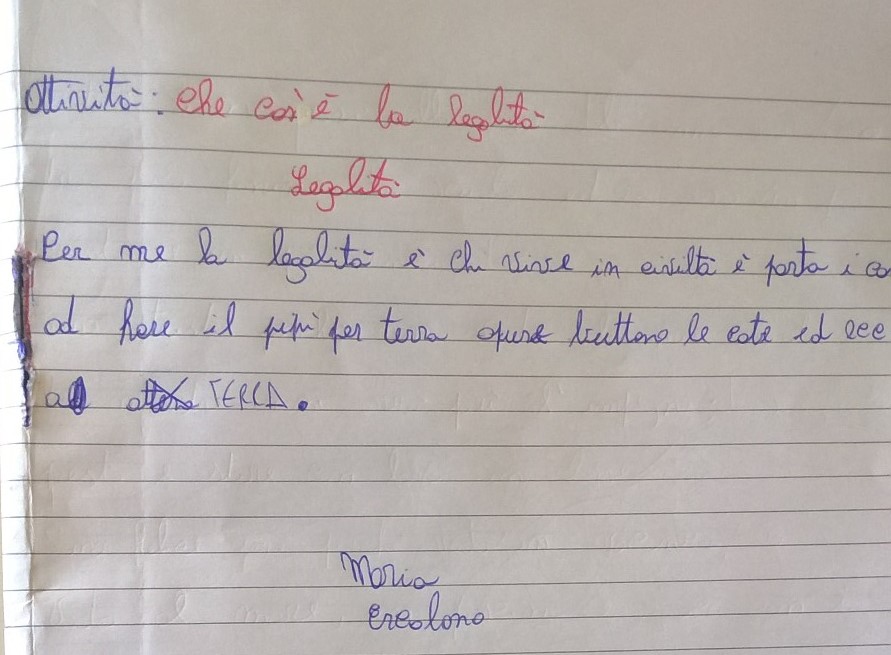 Attività: che cos'è la legalità
Legalità
Per me la legalità è chi vive in civiltà è porta i
ad fare il pipì per terra opure buttano le cate ed ecc
TERRA.
Maria
Ercolano